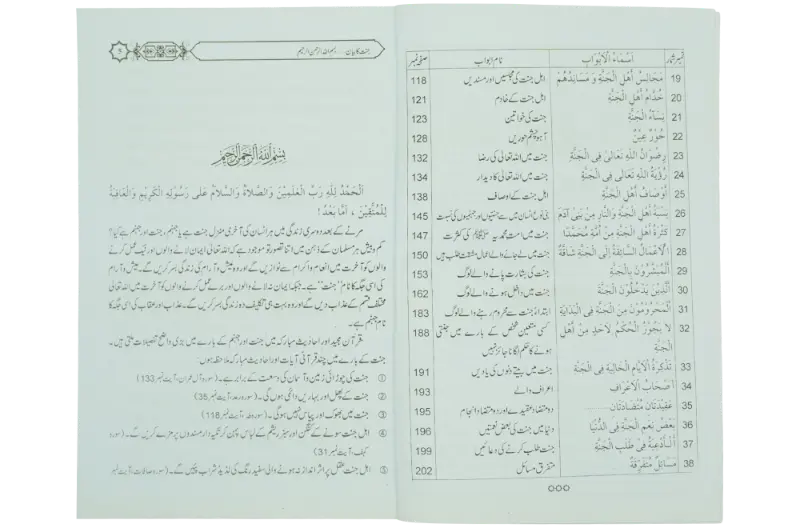 نمبر شمار اَسْمَاءُ الْاَبْوَابِ نام ابواب صفحہ نمبر
19 مَجَالِسُ اَهْلِ الْجَنَّةِ وَ مَسَانِدُهُمْ اہل جنت کی مجلسیں اور مسندیں 118
20 خُدَّامُ اَهْلِ الْجَنَّةِ اہل جنت کے خادم 121
21 نِسَاءُ الْجَنَّةِ جنت کی خواتین 123
22 حُوْرٌ عِيْنٌ آہو چشم حوریں 128
23 رِضْوَانُ اللهِ تَعَالٰى فِى الْجَنَّةِ جنت میں اللہ تعالیٰ کی رضا 132
24 رُؤْيَةُ اللهِ تَعَالٰى فِى الْجَنَّةِ جنت میں اللہ تعالیٰ کا دیدار 134
25 أَوْصَافُ أَهْلِ الْجَنَّةِ اہل جنت کے اوصاف 138
26 نِسْبَةُ أَهْلِ الْجَنَّةِ وَالنَّارِ مِنْ بَنِى آدَمَ بنی نوع انسان میں سے جنتیوں اور جہنمیوں کی نسبت 145
27 كَثْرَةُ أَهْلِ الْجَنَّةِ مِنْ أُمَّةِ مُحَمَّدٍ جنت میں امت محمدیہ ﷺ کی کثرت 147
28 اَلْأَعْمَالُ السَّائِقَةُ اِلَى الْجَنَّةِ شَاقَّةٌ جنت میں لے جانے والے اعمال مشقت طلب ہیں 150
29 اَلْمُبَشَّرُوْنَ بِالْجَنَّةِ جنت کی بشارت پانے والے لوگ 153
30 اَلَّذِيْنَ يَدْخُلُوْنَ الْجَنَّةَ جنت میں داخل ہونے والے لوگ 162
31 اَلْمَحْرُوْمُوْنَ مِنَ الْجَنَّةِ فِى الْبِدَايَةِ ابتداءً جنت سے محروم رہنے والے لوگ 183
32 لَا يَجُوْزُ الْحُكْمُ لِاَحَدٍ مِنْ أَهْلِ کسی معین شخص کے بارے میں جنتی 188
الْجَنَّةِ ہونے کا حکم لگانا جائز نہیں
33 تَذْكِرَةُ الْاَيَّامِ الْخَالِيَةِ فِى الْجَنَّةِ جنت میں بیتے دنوں کی یادیں 191
34 أَصْحَابُ الْأَعْرَافِ اعراف والے 193
35 عَقِيْدَتَانِ مُتَضَادَّتَانِ دو متضاد عقیدے اور دو متضاد انجام 195
36 بَعْضُ نِعَمِ الْجَنَّةِ فِى الدُّنْيَا دنیا میں جنت کی بعض نعمتیں 196
37 اَلْأَدْعِيَةُ فِى طَلَبِ الْجَنَّةِ جنت طلب کرنے کی دعائیں 199
38 مَسَائِلُ مُتَفَرِّقَةٌ متفرق مسائل 202
جنت کا بیان .... بسم اللہ الرحمن الرحیم
بسم الله الرحمن الرحيم
اَلْحَمْدُ لِلّٰهِ رَبِّ الْعٰلَمِيْنَ وَالصَّلَاةُ وَالسَّلَامُ عَلٰى رَسُوْلِهِ الْكَرِيْمِ وَالْعَاقِبَةُ
لِلْمُتَّقِيْنَ ، أَمَّا بَعْدُ !
مرنے کے بعد دوسری زندگی میں ہر انسان کی آخری منزل جنت ہے یا جہنم، جنت اور جہنم ہے کیا؟
کم و بیش ہر مسلمان کے ذہن میں اتنا تصور تو موجود ہے کہ اللہ تعالیٰ ایمان لانے والوں اور نیک عمل کرنے
والوں کو آخرت میں انعام و اکرام سے نوازیں گے اور وہ عیش و آرام کی زندگی بسر کریں گے۔ عیش و آرام
کی اسی جگہ کا نام "جنت" ہے۔ جبکہ ایمان نہ لانے والوں اور برے عمل کرنے والوں کو آخرت میں اللہ تعالیٰ
مختلف قسم کے عذاب دیں گے اور وہ بہت ہی تکلیف دہ زندگی بسر کریں گے۔ عذاب اور عقاب کی اس جگہ کا
نام جہنم ہے۔
قرآن مجید اور احادیث مبارکہ میں جنت اور جہنم کے بارے میں بڑی واضح تفصیلات ملتی ہیں۔
جنت کے بارے میں چند قرآنی آیات اور احادیث مبارکہ ملاحظہ ہوں۔
① جنت کی چوڑائی زمین و آسمان کی وسعت کے برابر ہے۔ (سورہ آل عمران، آیت نمبر 133)
② جنت کے پھل اور بہاریں دائمی ہوں گی۔ (سورہ رعد، آیت نمبر 35)
③ جنت میں بھوک اور پیاس نہیں ہوگی۔ (سورہ طہ، آیت نمبر 118)
④ اہل جنت سونے کے کنگن اور سبز ریشم کے لباس پہن کر تکیہ دار مسندوں پر مزے کریں گے۔ (سورہ
کہف، آیت نمبر 31)
⑤ اہل جنت عقل پر اثر انداز نہ ہونے والی سفید رنگ کی لذیذ شراب پئیں گے۔ (سورہ صافات، آیت نمبر